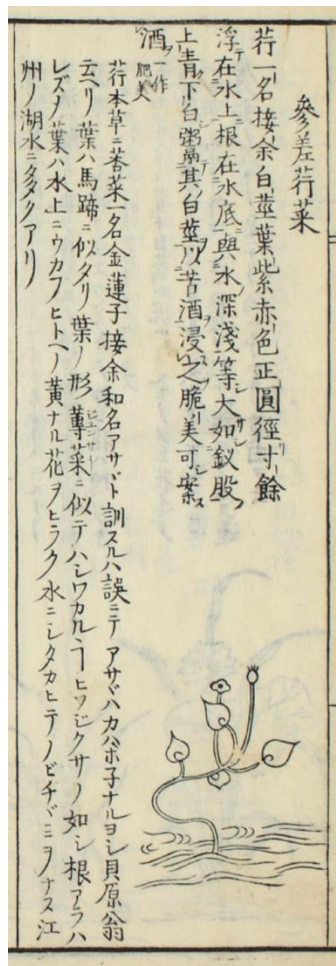 參差荇菜
荇一名接余白莖葉紫赤色正圓徑寸餘
浮テ在水上根在水底與水深淺等大如釵股
上青下白鬻其白莖以苦酒浸之脆美可案
酒一作肥美
荇本草ニ莕菜一名金蓮子接余和名アサヾト訓スルハ誤ニテアサヾハカハホ子ナルヨシ貝原翁
云ヘリ葉ハ馬蹄ニ似タリ葉ノ形蓴菜ニ似テハシワカルヿヒツジクサノ如シ根アラハ
レズノ葉ハ水上ニウカフヒトヘノ黄ナル花ヲヒラク水ニシタカヒテノビチヾミヲナス江
州ノ湖水ニ多クアリ